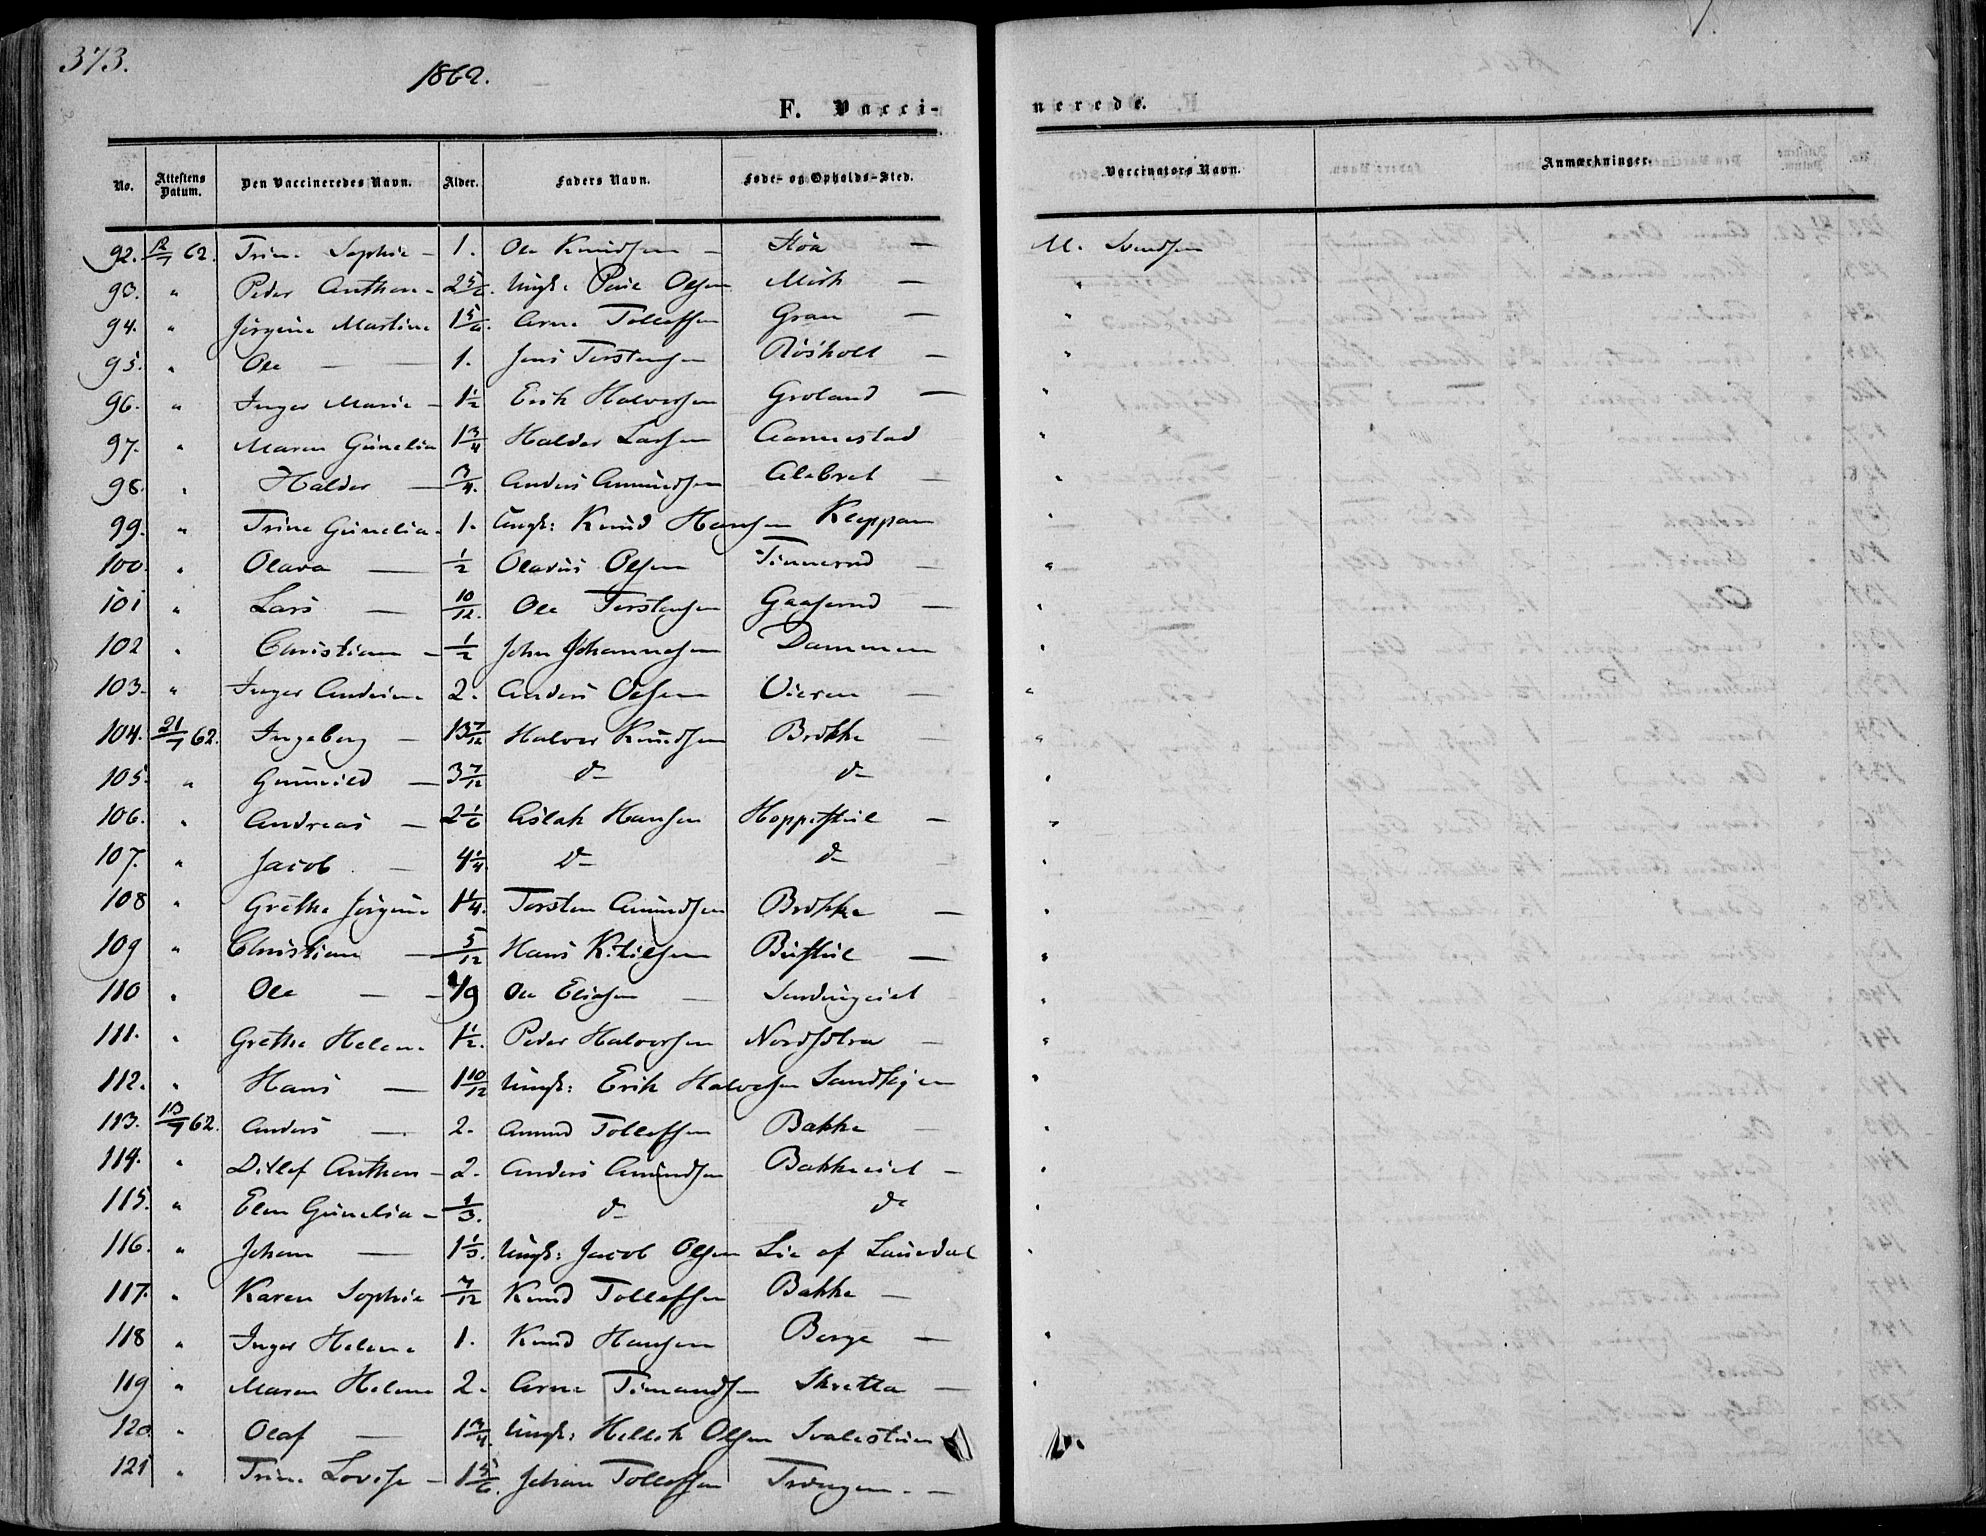 373.
1862.
F. Vacci-
nerede.
No. Attestens Datum. Den Vaccineredes Navn. Alder. Faders Navn. Føde- og Opholds-Sted. Vaccinators Navn. Anmærkninger.
92. 12/7 62. Trine Sophie - 1. Ole Knudsen - Röa - M. Svendsen
93. " Peder Anthon - 2 5/6. Ungk: Povel Olsen Mörk - "
94. " Jörgine Martine 1 5/6. Arne Tollefsen Gran - "
95. " Ole - 1. Jens Torstensen Rösholt - "
96. " Inger Marie - 1 1/2 Erik Halvorsen Groland - "
97. " Maren Gunelia 1 3/4 Haldor Larsen Aannestad "
98. " Haldor - 3/4. Anders Amundsen Alebret - "
99. " Trine Gunelia - 1. Ungk: Knud Hansen Kleppan "
100. " Olava - 1/2 Olavus Olsen Tinnerud - "
101 " Lars - 10/12. Ole Torstensen Gaaserud - "
102 " Christian - 1/2 John Johannesen Dammen "
103. " Inger Andrine 2. Anders Olsen Vieren - "
104. 21/7 62. Ingeborg - 13 7/12 Halvor Knudsen Brökke - "
105. " Gunvild - 3 7/12 do do "
106. " Andreas - 2 1/6 Aslak Hansen Hoppestul - "
107. " Jacob - 4 1/4. do do - "
108 " Grethe Jörgine 1 1/4. Torsten Amundsen Brökke - "
109 " Christian - 5/12 Hans Ketilsen Bustul - "
110 " Ole - 19 Ole Eliasen - "
111. " Grethe Helene 1 1/2. Peder Halvorsen Nordsötra - "
112. " Hans - 1 10/12 Ungk: Erik Halvorsen "
113. 13/7 62. Anders - 2. Amund Tollefsen Bakke - "
114. " Ditlef Anthon - 2. Anders Amundsen Bakkeeiet - "
115. " Elen Gunelia - 1/3. do do "
116. " Johan - 1 1/3. Ungk: Jacob Olsen Lie af "
117. " Karen Sophie 7/12 Knud Tollefsen Bakke -
118 " Inger Helene 1. Knud Hansen Berge - "
119 " Maren Helene 2. Arne Timandsen Skretta - "
120 " Olaf - 1 3/4. Ungk: Hellek Olsen
121 " Trine Lovise - 1 5/6. Johan Tollefsen -